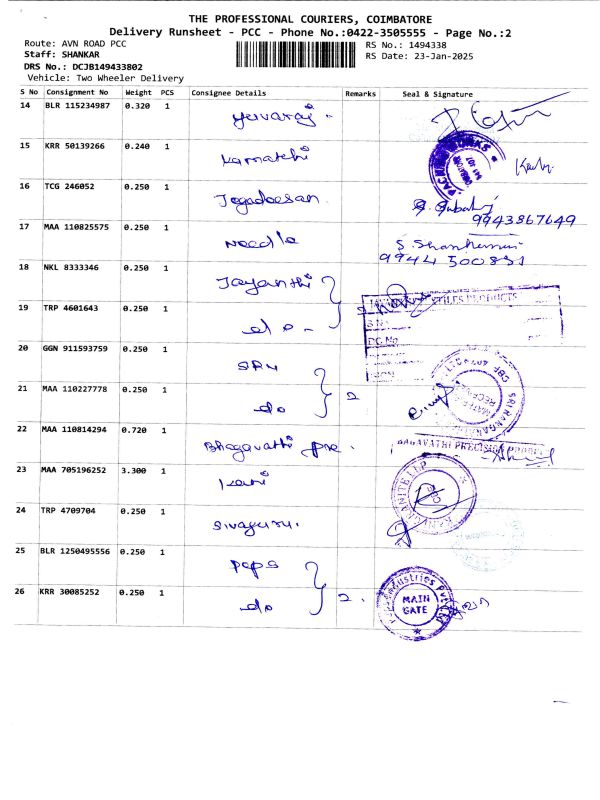 THE PROFESSIONAL COURIERS, COIMBATORE
Delivery Runsheet - PCC - Phone No.:0422-3505555 - Page No.:2
Route: AVN ROAD PCC RS No.: 1494338
Staff: SHANKAR RS Date: 23-Jan-2025
DRS No.: DCJB149433802
Vehicle: Two Wheeler Delivery
S No Consignment No Weight PCS Consignee Details Remarks Seal & Signature
14 BLR 115234987 0.320 1 yuvaraj
15 KRR 50139266 0.240 1 kamatchi
16 TCG 246052 0.250 1 Jegadeesan
9943867649
17 MAA 110825575 0.250 1 Needle
9944 500831
18 NKL 8333346 0.250 1 Jayanthi
19 TRP 4601643 0.250 1 do
20 GGN 911593759 0.250 1 SRN
21 MAA 110227778 0.250 1 do 2
22 MAA 110814294 0.720 1 Bhagavathi pre. BAGAVATHI PRECISION
23 MAA 705196252 3.300 1
24 TRP 4709704 0.250 1 Sivaguru.
25 BLR 1250495556 0.250 1 Peps
26 KRR 30085252 0.250 1 do 2. MAIN
GATE